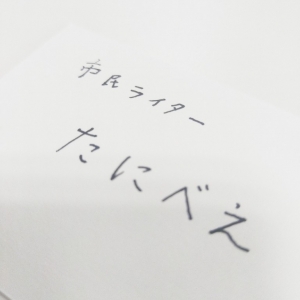 市民ライター
たにべえ